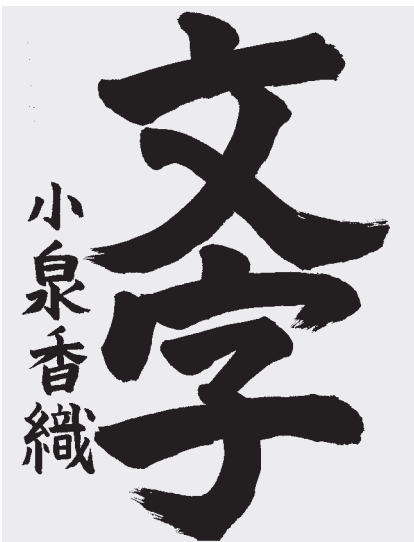 文字
小泉香織